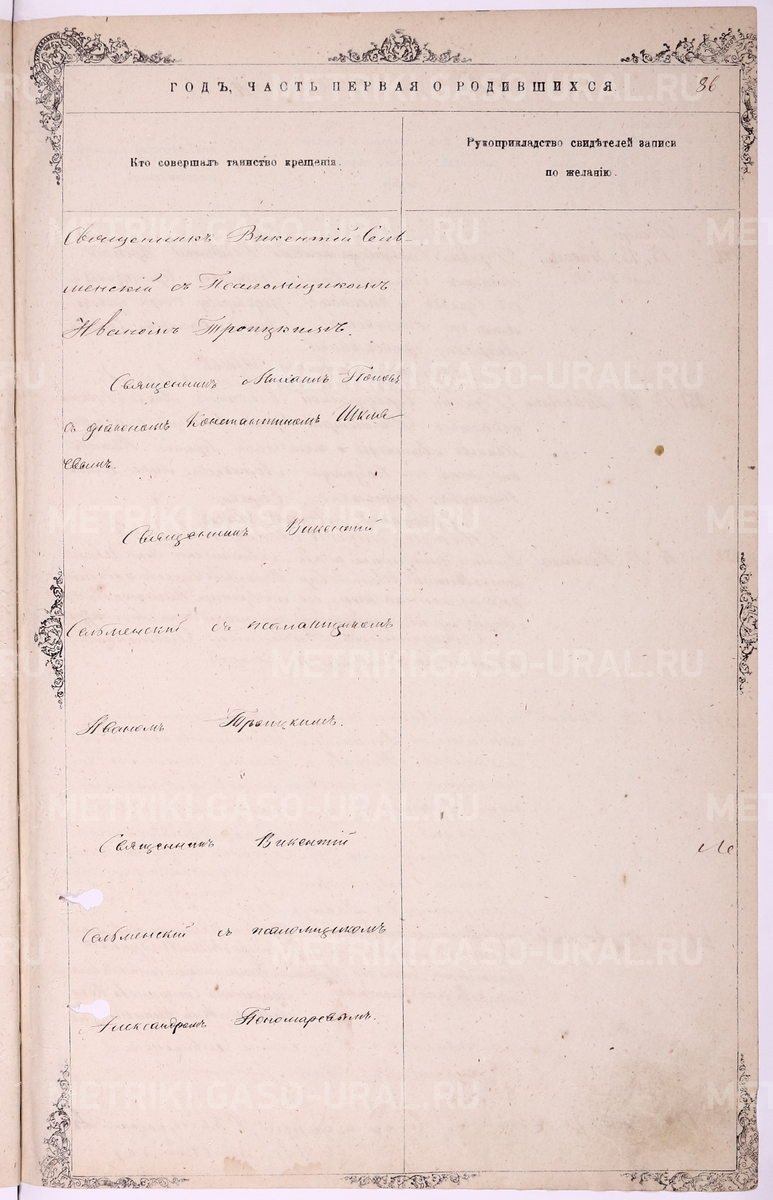 ГОДЪ, ЧАСТЬ ПЕРВАЯ О РОДИВШИХСЯ. 86
Кто совершалъ таинство крещенія.
Рукоприкладство свидѣтелей записи
по желанію.
Священникъ Викентій Сель-
менскій съ Псаломщикомъ
Иваномъ Троицкимъ.
Священникъ Михаилъ Поповъ
съ діакономъ Константиномъ Шкля
евымъ.
Священникъ Викентій
Сельменскій съ псаломщикомъ
Иваномъ Троицкимъ.
Священникъ Викентій
Сельменскій съ псаломщикомъ
Александромъ Пономаревымъ.
METRIKI.GASO-URAL.RU